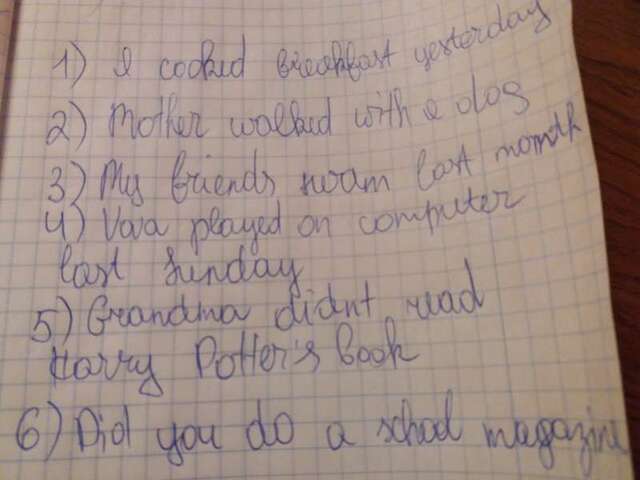 1) I cooked breakfast yesterday
2) Mother walked with a dog
3) My friends swam last momth
4) Vova played on computer
last Sunday
5) Grandma didnt read
Harry Potter's book
6) Did you do a school magazine